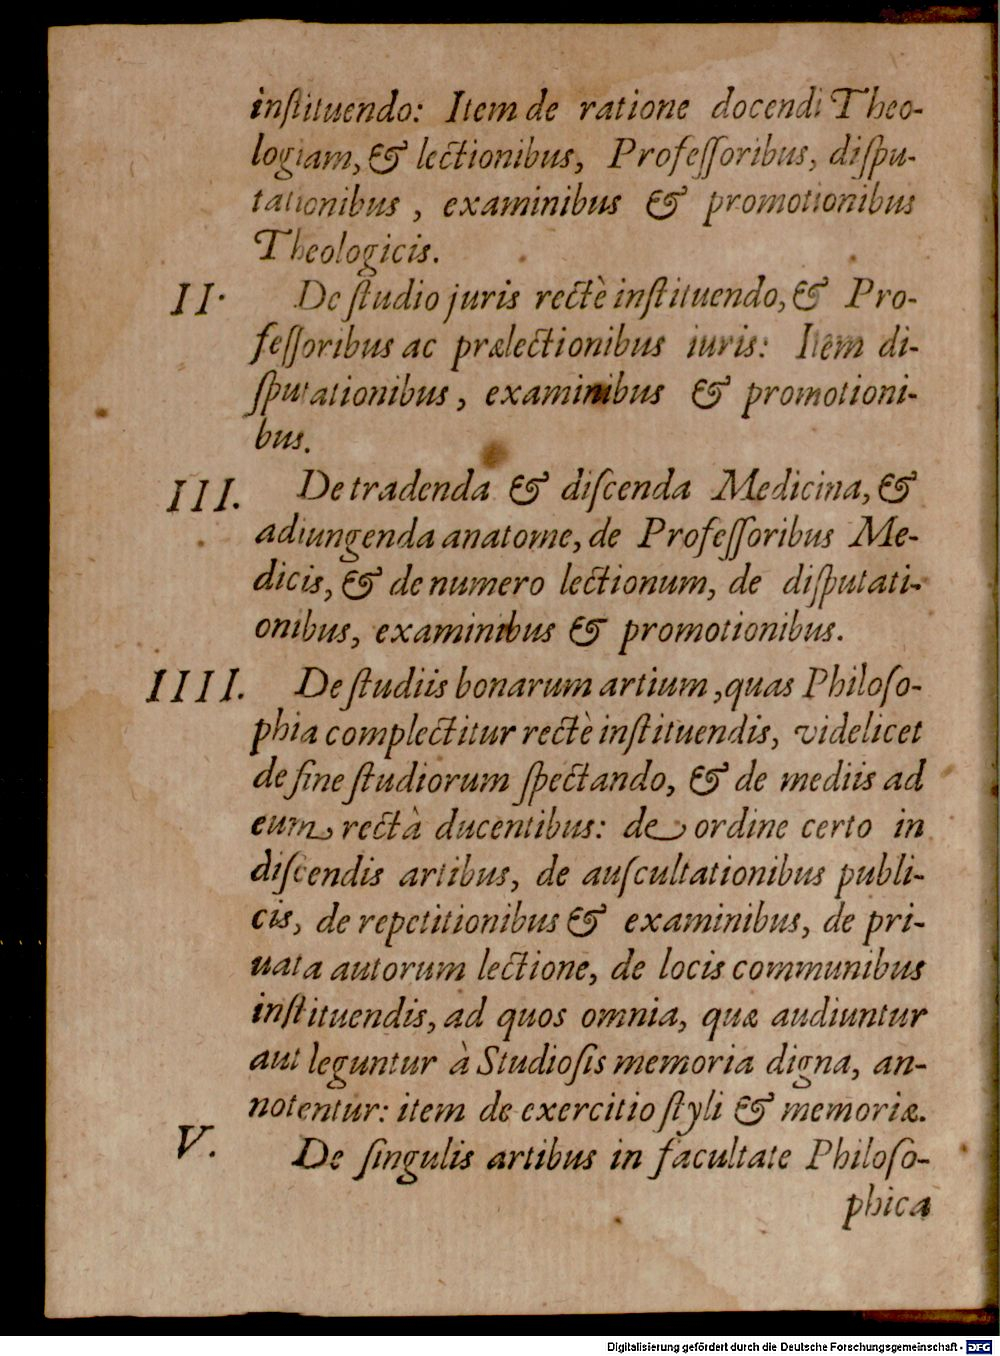 inſtituendo: Item de ratione docendi Theo-
logiam, & lectionibus, Profeſſoribus, diſpu-
tationibus, examinibus & promotionibus
Theologicis.
II. De ſtudio juris rectè inſtituendo, & Pro-
feſſoribus ac prælectionibus iuris: Item di-
ſputationibus, examinibus & promotioni-
bus.
III. De tradenda & diſcenda Medicina, &
adiungenda anatome, de Profeſſoribus Me-
dicis, & de numero lectionum, de diſputati-
onibus, examinibus & promotionibus.
IIII. De ſtudiis bonarum artium, quas Philoſo-
phia complectitur rectè inſtituendis, videlicet
de fine ſtudiorum ſpectando, & de mediis ad
eum rectà ducentibus: de ordine certo in
diſcendis artibus, de auſcultationibus publi-
cis, de repetitionibus & examinibus, de pri-
uata autorum lectione, de locis communibus
inſtituendis, ad quos omnia, quæ audiuntur
aut leguntur à Studioſis memoria digna, an-
notentur: item de exercitio ſtyli & memoriæ.
V. De ſingulis artibus in facultate Philoſo-
phica
Digitalisierung gefördert durch die Deutsche Forschungsgemeinschaft - DFG